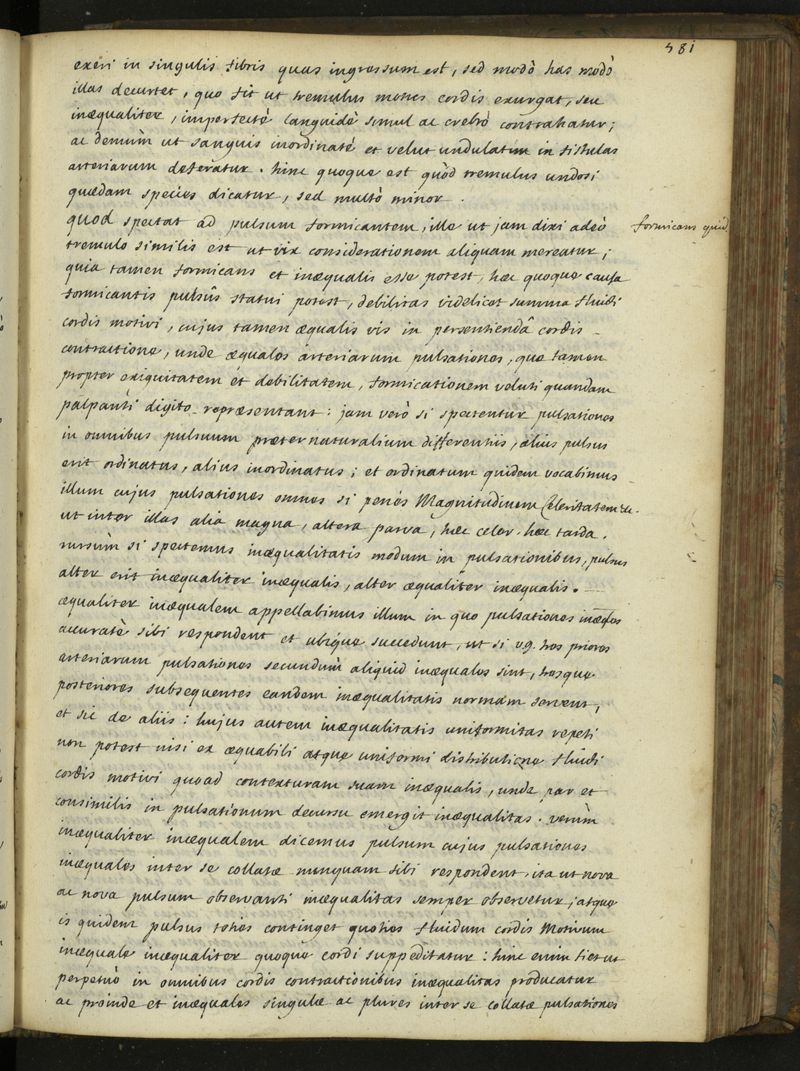 581
exeri in singulis fibris quas ingressum est, sed modò has modò
illas decurtet, quo fit ut tremulus motus cordis exurgat, seu
inæqualiter, imperfectè languidè simul ac crebrò contrahatur;
ac demùm ut sanguis inordinatè et velut undulatim in fistulas
arteriarum deferatur. hinc quoque est quòd tremulus undosi
quædam species dicatur, sed multò minor.
quod spectat ad pulsum formicantem, ille ut jam dixi adeò
formicans quid
tremulo similis est ut vix considerationem aliquam mereatur;
quia tamen formicans et inæqualis esse potest, hæc quoque causa
formicantis pulsûs statui potest, debilitas videlicet summa fluidi
cordis motivi, cujus tamen æqualis vis in persentiendâ cordis
contractione, unde æquales arteriarum pulsationes, quæ tamen
propter exiguitatem et debilitatem, formicationem veluti quandam
palpanti digito repræsentant: jam verò si spectentur pulsationes
in omnibus pulsuum præternaturalium differentiis, alius pulsus
erit ordinatus, alius inordinatus; et ordinatum quidem vocabimus
illum cujus pulsationes omnes si penès Magnitudinem Celeritatem &c.
ut inter illas alia magna, altera parva, hæc celer. hæc tarda.
rursùm si spectemus inæqualitatis modum in pulsationibus, pulsus
alter erit inæqualiter inæqualis, alter æqualiter inæqualis.
æqualiter inæqualem appellabimus illum in quo pulsationes inæqles
accuratè sibi respondent et ubique succedunt, ut si v.g. hos priores
arteriarum pulsationes secundùm aliquid inæquales sint, hosque
posteriores subsequentes eandem inæqualitatis normam servent,
et sic de aliis: hujus autem inæqualitatis uniformitas repeti
non potest nisi ex æquabili atque uniformi distributione fluidi
cordis motivi quoad contexturam suam inæqualis, unde par et
consimilis in pulsationum decursu emergit inæqualitas. verùm
inæqualiter inæqualem dicemus pulsum cujus pulsationes
inæquales inter se collatæ nunquam sibi respondent, ita ut nova
ac nova pulsum observanti inæqualitas semper observetur; atque
is quidem pulsus toties continget quoties fluidum cordis Motivum
inæquale inæqualiter quoque cordi suppeditatur: hinc enim fiet ut
perpetuò in omnibus cordis contractionibus inæqualitas producatur
ac proinde et inæquales singulæ ac plures inter se collatæ pulsationes